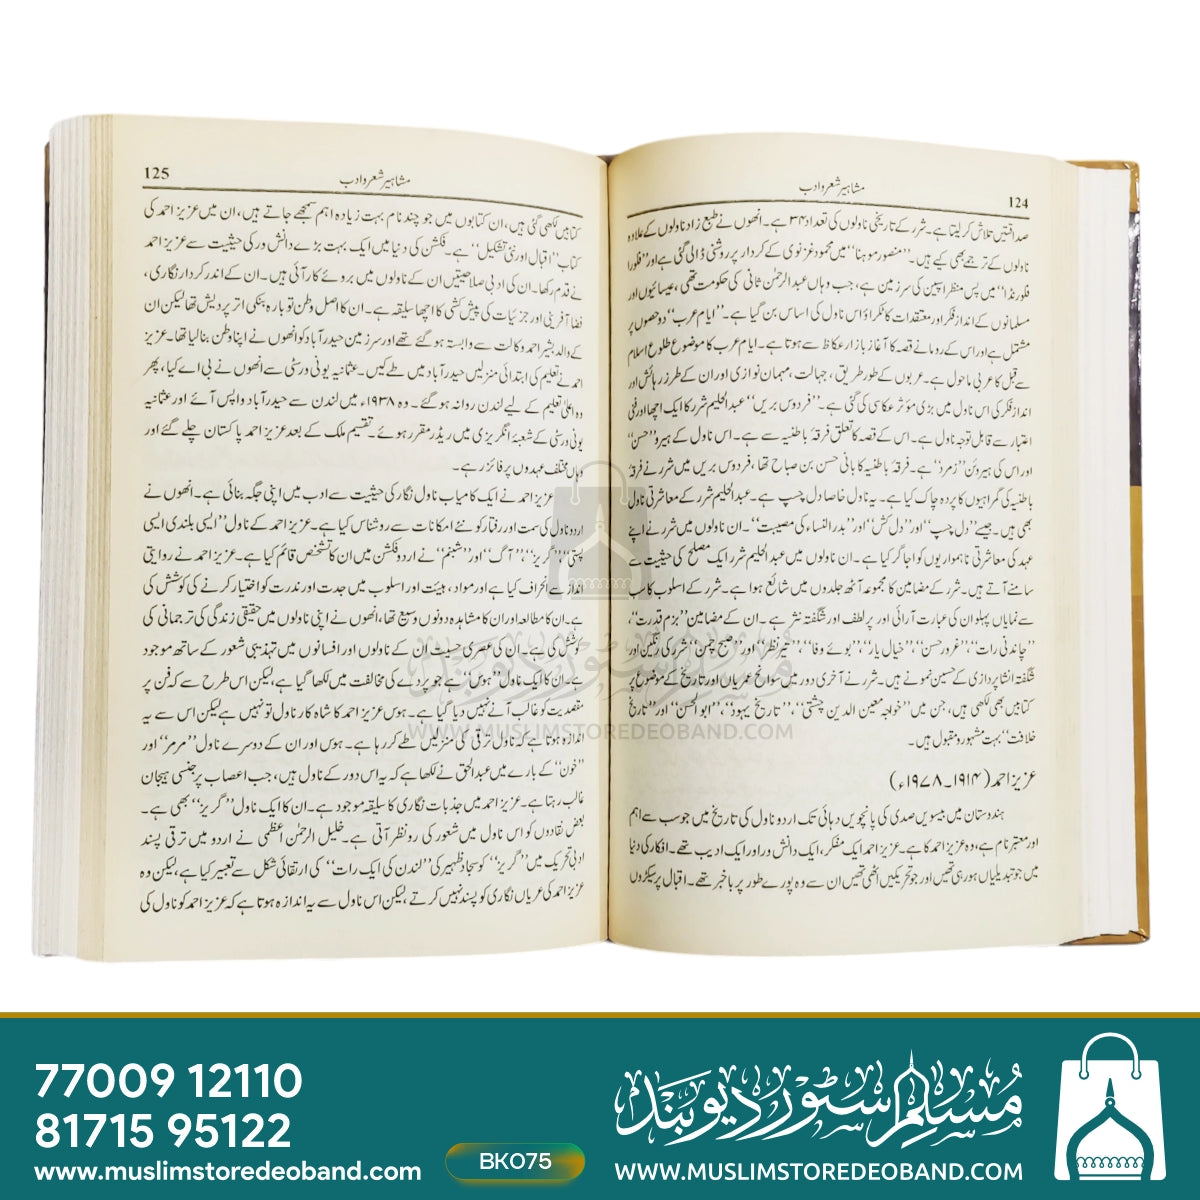 مشاہیر شعر و ادب
124
صداقتیں تلاش کر لیتا ہے۔ شرر کے تاریخی ناولوں کی تعداد ۳۴ ہے۔ انھوں نے طبع زاد ناولوں کے علاوہ
ناولوں کے ترجمے بھی کیے ہیں۔ ’’منصور موہنا‘‘ میں محمود غزنوی کے کردار پر روشنی ڈالی گئی ہے اور ’’فلورا
فلورنڈا‘‘ میں پس منظر اسپین کی سرزمین ہے، جب وہاں عبدالرحمٰن ثانی کی حکومت تھی، عیسائیوں اور
مسلمانوں کے انداز فکر اور معتقدات کا ٹکراؤ اس ناول کی اساس بن گیا ہے۔ ’’ایام عرب‘‘ دو حصوں پر
مشتمل ہے اور اس کے رومانے قصہ کا آغاز بازار عکاظ سے ہوتا ہے۔ ایام عرب کا موضوع طلوع اسلام
سے قبل کا عربی ماحول ہے۔ عربوں کے طور طریق، جہالت، مہمان نوازی اور ان کے طرز رہائش اور
انداز فکر کی اس ناول میں بڑی مؤثر عکاسی کی گئی ہے۔ ’’فردوس بریں‘‘ عبدالحلیم شرر کا ایک اچھا اور فنی
اعتبار سے قابل توجہ ناول ہے۔ اس کے قصہ کا تعلق فرقۂ باطنیہ سے ہے۔ اس ناول کے ہیرو ’’حسن‘‘
اور اس کی ہیروئن ’’زمرد‘‘ ہے۔ فرقۂ باطنیہ کا بانی حسن بن صباح تھا، فردوس بریں میں شرر نے فرقۂ
باطنیہ کی گمراہیوں کا پردہ چاک کیا ہے۔ یہ ناول خاصا دل چسپ ہے۔ عبدالحلیم شرر کے معاشرتی ناول
بھی ہیں۔ جیسے ’’دل چسپ‘‘ اور ’’دل کش‘‘ اور ’’بدر النساء کی مصیبت‘‘۔ ان ناولوں میں شرر نے اپنے
عہد کی معاشرتی ناہمواریوں کو اجاگر کیا ہے۔ ان ناولوں میں عبدالحلیم شرر ایک مصلح کی حیثیت سے
سامنے آتے ہیں۔ شرر کے مضامین کا مجموعہ آٹھ جلدوں میں شائع ہوا ہے۔ شرر کے اسلوب کا سب
سے نمایاں پہلو ان کی عبارت آرائی اور پر لطف اور شگفتہ نثر ہے۔ ان کے مضامین ’’بزم قدرت‘‘،
’’چاندنی رات‘‘، ’’غرور حسن‘‘، ’’خیال یار‘‘، ’’بوئے وفا‘‘، ’’تیر نظر‘‘ اور ’’صبح چمن‘‘ شرر کی رنگین اور
شگفتہ انشا پردازی کے حسین نمونے ہیں۔ شرر نے آخری دور میں سوانح عمریاں اور تاریخ کے موضوع پر
کتابیں بھی لکھی ہیں، جن میں ’’خواجہ معین الدین چشتی‘‘، ’’تاریخ یہود‘‘، ’’ابو الحسن‘‘ اور ’’تاریخ
خلافت‘‘ بہت مشہور و مقبول ہیں۔
عزیز احمد (۱۹۱۴۔۱۹۷۸ء)
ہندوستان میں بیسویں صدی کی پانچویں دہائی تک اردو ناول کی تاریخ میں جو سب سے اہم
اور معتبر نام ہے، وہ عزیز احمد کا ہے۔ عزیز احمد ایک مفکر، ایک دانش ور اور ایک ادیب تھے۔ افکار کی دنیا
میں جو تبدیلیاں ہو رہی تھیں اور جو تحریکیں اٹھی تھیں ان سے وہ پورے طور پر باخبر تھے۔ اقبال پر سیکڑوں
125
مشاہیر شعر و ادب
کتابیں لکھی گئی ہیں، ان کتابوں میں جو چند نام بہت زیادہ اہم سمجھے جاتے ہیں، ان میں عزیز احمد کی
کتاب ’’اقبال اور نئی تشکیل‘‘ ہے۔ فکشن کی دنیا میں ایک بہت بڑے دانش ور کی حیثیت سے عزیز احمد
نے قدم رکھا۔ ان کی ادبی صلاحیتیں ان کے ناولوں میں بروئے کار آئی ہیں۔ ان کے اندر کردار نگاری،
فضا آفرینی اور جزئیات کی پیش کشی کا اچھا سلیقہ ہے۔ ان کا اصل وطن تو بارہ بنکی اتر پردیش تھا لیکن ان
کے والد بشیر احمد وکالت سے وابستہ ہو گئے تھے اور سرزمین حیدرآباد کو انھوں نے اپنا وطن بنا لیا تھا۔ عزیز
احمد نے تعلیم کی ابتدائی منزلیں حیدرآباد میں طے کیں۔ عثمانیہ یونی ورسٹی سے انھوں نے بی اے کیا، پھر
وہ اعلیٰ تعلیم کے لیے لندن روانہ ہو گئے۔ وہ ۱۹۳۸ء میں لندن سے حیدرآباد واپس آئے اور عثمانیہ
یونی ورسٹی کے شعبۂ انگریزی میں ریڈر مقرر ہوئے۔ تقسیم ملک کے بعد عزیز احمد پاکستان چلے گئے اور
وہاں مختلف عہدوں پر فائز رہے۔
عزیز احمد نے ایک کامیاب ناول نگار کی حیثیت سے ادب میں اپنی جگہ بنائی ہے۔ انھوں نے
اردو ناول کی سمت اور رفتار کو نئے امکانات سے روشناس کیا ہے۔ عزیز احمد کے ناول ’’ایسی بلندی ایسی
پستی‘‘، ’’گریز‘‘، ’’آگ‘‘ اور ’’شبنم‘‘ نے اردو فکشن میں ان کا تشخص قائم کیا ہے۔ عزیز احمد نے روایتی
انداز سے انحراف کیا ہے اور مواد، ہیئت اور اسلوب میں جدت اور ندرت کو اختیار کرنے کی کوشش کی
ہے۔ ان کا مطالعہ اور ان کا مشاہدہ دونوں وسیع تھا، انھوں نے اپنی ناولوں میں حقیقی زندگی کی ترجمانی کی
کوشش کی ہے۔ ان کی عصری حسیت ان کے ناولوں اور افسانوں میں تہذیبی شعور کے ساتھ موجود
ہے۔ ان کا ایک ناول ’’ہوس‘‘ ہے جو پردے کی مخالفت میں لکھا گیا ہے، لیکن اس طرح سے کہ فن پر
مقصدیت کو غالب آنے نہیں دیا گیا ہے۔ ہوس عزیز احمد کا شاہکار ناول تو نہیں ہے لیکن اس سے یہ
اندازہ ہوتا ہے کہ ناول ترقی کی منزلیں طے کر رہا ہے۔ ہوس اور ان کے دوسرے ناول ’’مرمر‘‘ اور
’’خون‘‘ کے بارے میں عبدالحق نے لکھا ہے کہ یہ اس دور کے ناول ہیں، جب اعصاب پر جنسی ہیجان
غالب رہتا ہے۔ عزیز احمد میں جذبات نگاری کا سلیقہ موجود ہے۔ ان کا ایک ناول ’’گریز‘‘ بھی ہے۔
بعض نقادوں کو اس ناول میں شعور کی رو نظر آتی ہے۔ خلیل الرحمٰن اعظمی نے اردو میں ترقی پسند
ادبی تحریک میں ’’گریز‘‘ کو سجاد ظہیر کی ’’لندن کی ایک رات‘‘ کی ارتقائی شکل سے تعبیر کیا ہے، لیکن وہ
عزیز احمد کی عریاں نگاری کو پسند نہیں کرتے، لیکن اس ناول سے یہ اندازہ ہوتا ہے کہ عزیز احمد کو ناول کی
مسلم سٹور دیوبند
WWW.MUSLIMSTOREDEOBAND.COM
77009 12110
81715 95122
www.muslimstoredeoband.com
BK075
مسلم سٹور دیوبند
WWW.MUSLIMSTOREDEOBAND.COM